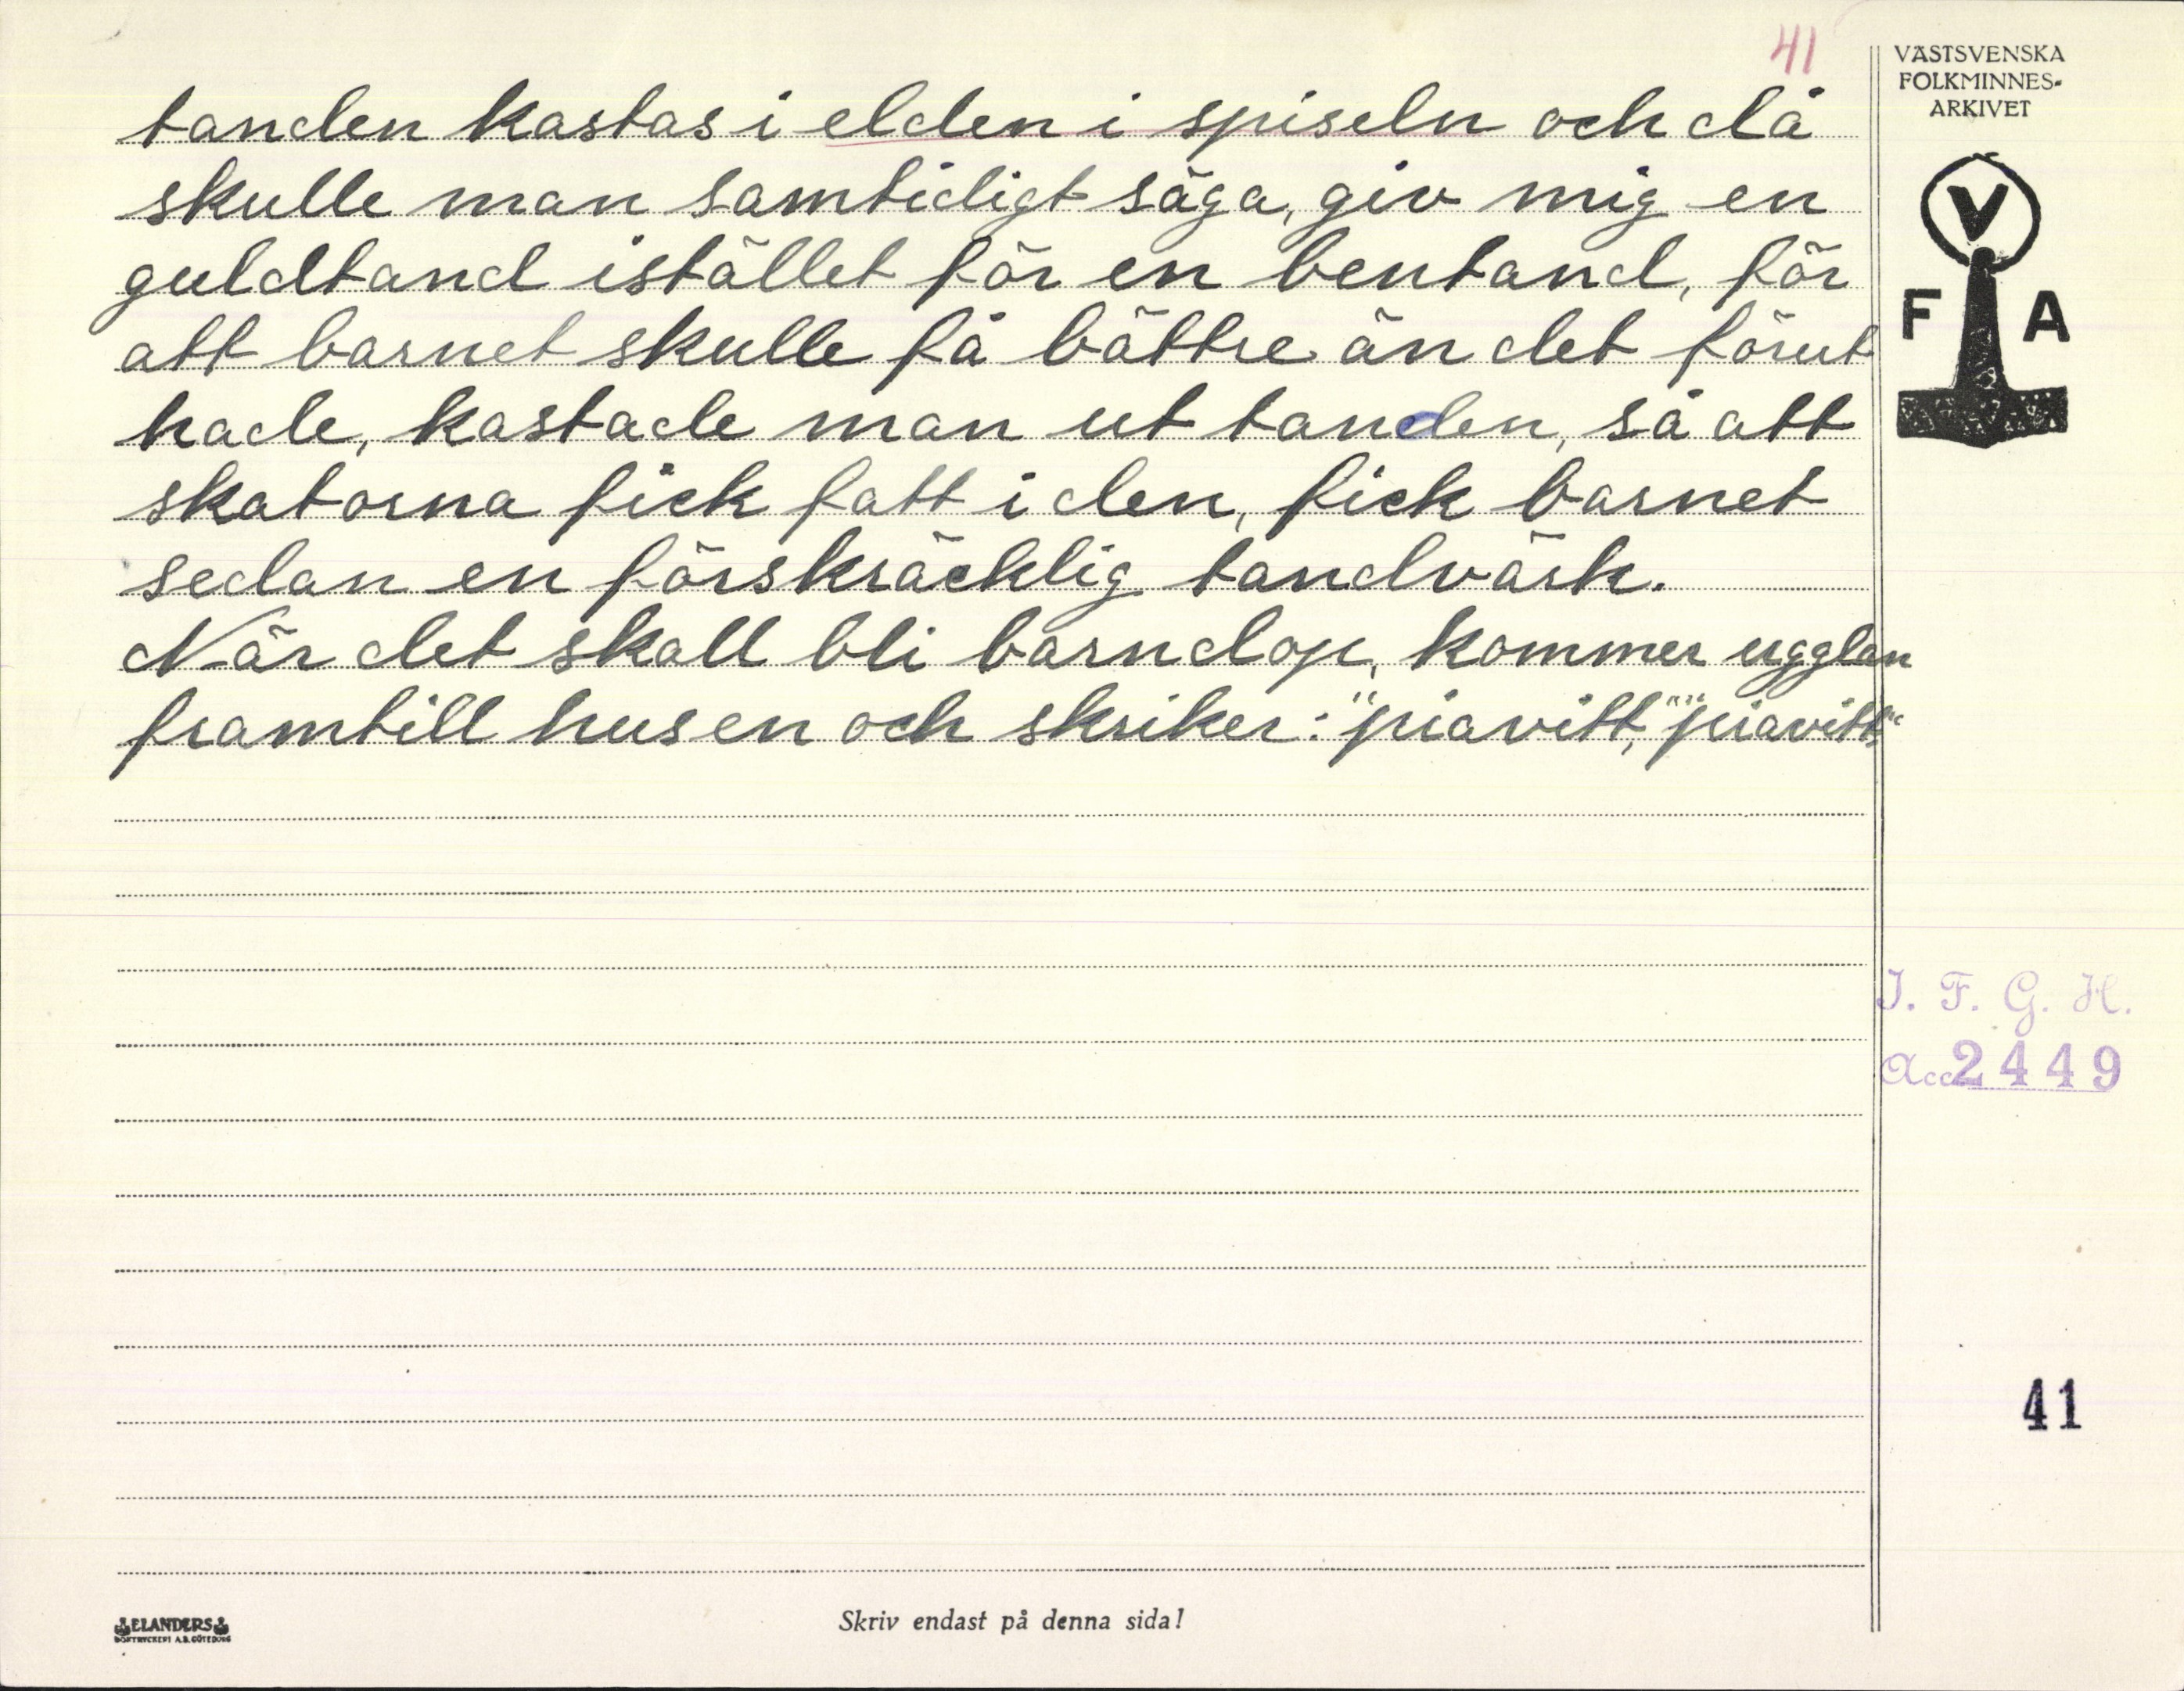 41
VÄSTSVENSKA
FOLKMINNES-
ARKIVET
V
F A
tanden kastas i elden i spiseln och då
skulle man samtidigt säga, giv mig en
guldtand istället för en bentand, för
att barnet skulle få bättre än det förut
hade, kastade man ut tanden, så att
skatorna fick fatt i den, fick barnet
sedan en förskräcklig tandvärk.
När det skall bli barndop, kommer ugglan
framtill husen och skriker: "piavitt," "piavitt,"
I. F. G. H.
Acc 2449
41
ELANDERS
BOKTRYCKERI A.B. GÖTEBORG
Skriv endast på denna sida!